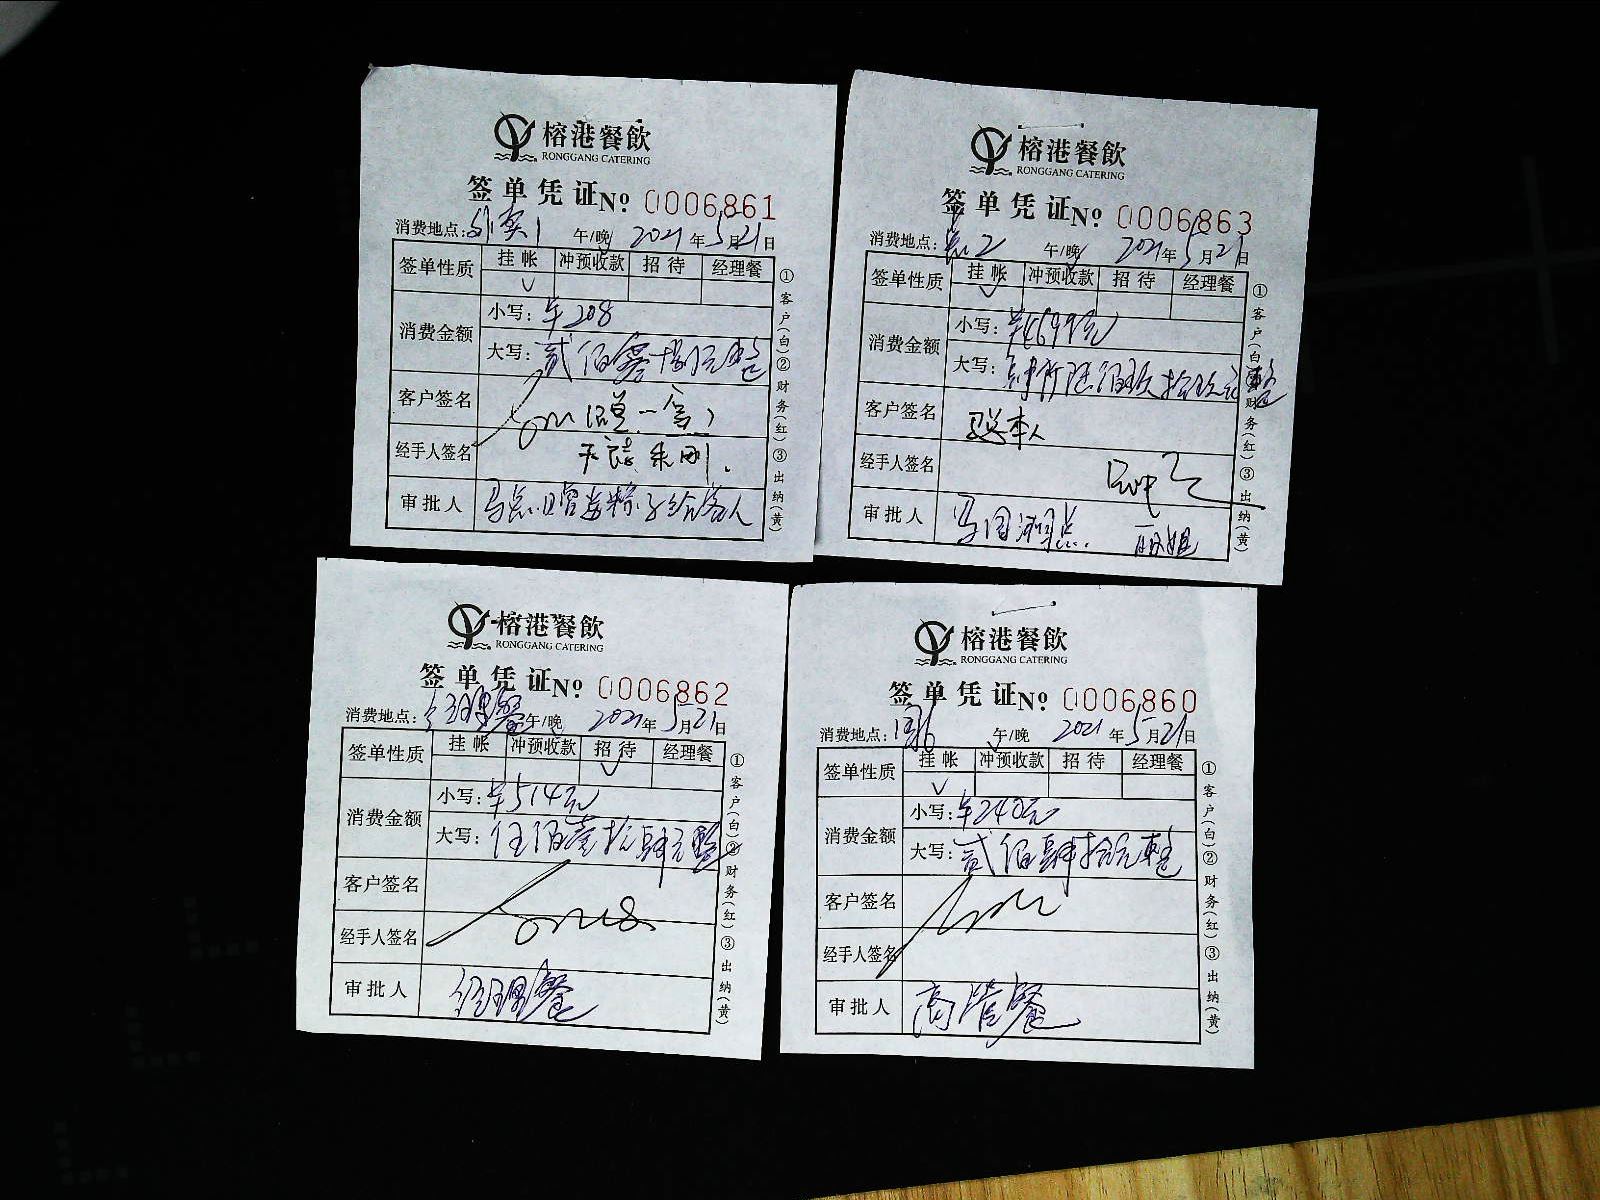 榕港餐飲
RONGGANG CATERING
签单凭证No 0006861
消费地点: 外卖1 午/晚 2021年5月21日
签单性质 挂帐 冲预收款 招待 经理餐
✓
消费金额 小写: ¥208
大写: 贰佰零捌元整
客户签名
经手人签名
审批人
①客户(白)②财务(红)③出纳(黄)
榕港餐飲
RONGGANG CATERING
签单凭证No 0006863
消费地点: 午/晚 2021年5月21日
签单性质 挂帐 冲预收款 招待 经理餐
✓
消费金额 小写: ¥4699元
大写: 肆仟陆佰玖拾玖元整
客户签名 本人
经手人签名
审批人
①客户(白)②财务(红)③出纳(黄)
榕港餐飲
RONGGANG CATERING
签单凭证No 0006862
消费地点: 经理餐 午/晚 2021年5月21日
签单性质 挂帐 冲预收款 招待 经理餐
✓
消费金额 小写: ¥514元
大写: 伍佰壹拾肆元整
客户签名
经手人签名
审批人 经理餐
①客户(白)②财务(红)③出纳(黄)
榕港餐飲
RONGGANG CATERING
签单凭证No 0006860
消费地点: 午/晚 2021年5月21日
签单性质 挂帐 冲预收款 招待 经理餐
✓
消费金额 小写: ¥240元
大写: 贰佰肆拾元整
客户签名
经手人签名
审批人
①客户(白)②财务(红)③出纳(黄)